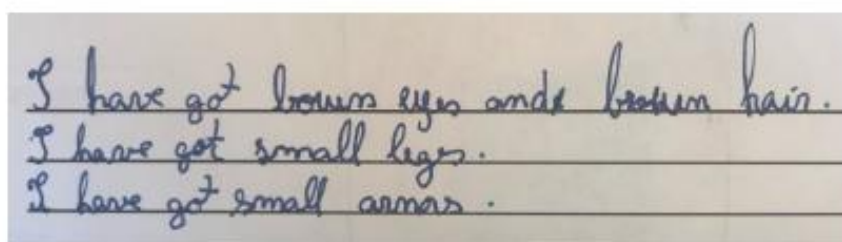 I have got brown eyes and brown hair.
I have got small leges.
I have got small armos.